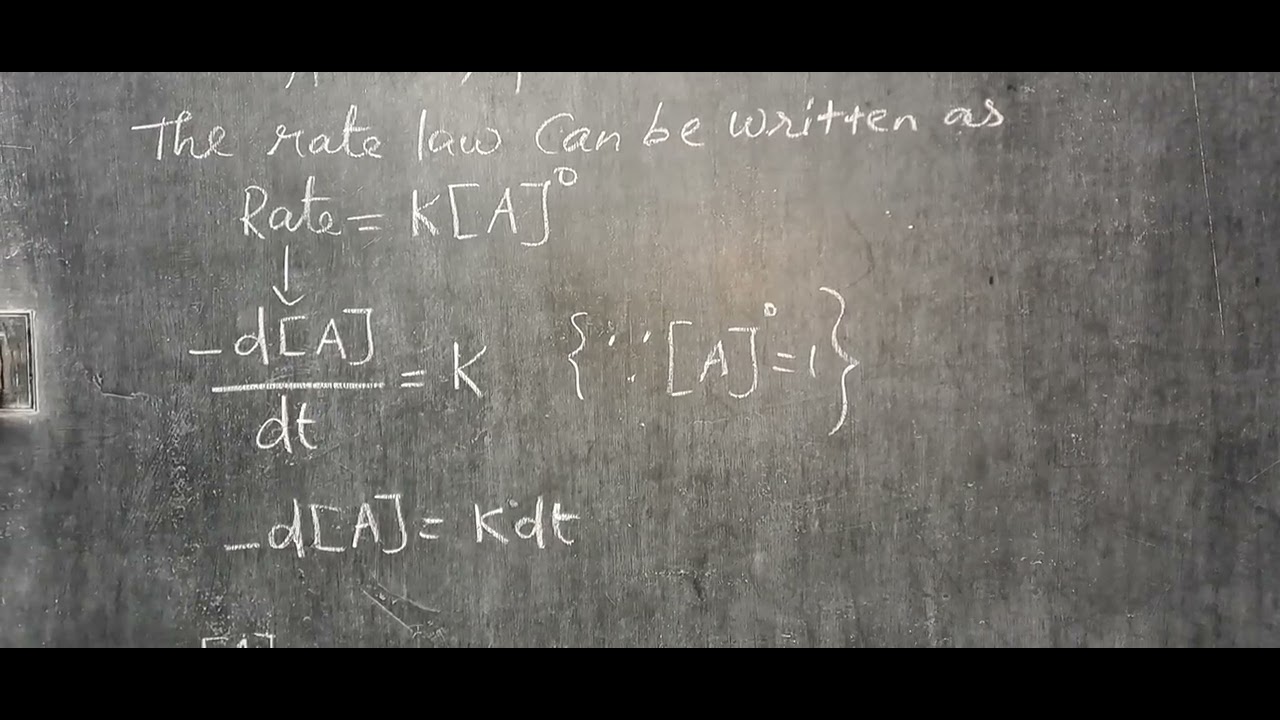 The rate law Can be written as
Rate = K[A]⁰
-d[A]/dt = K {∵ [A]⁰ = 1}
-d[A] = Kdt